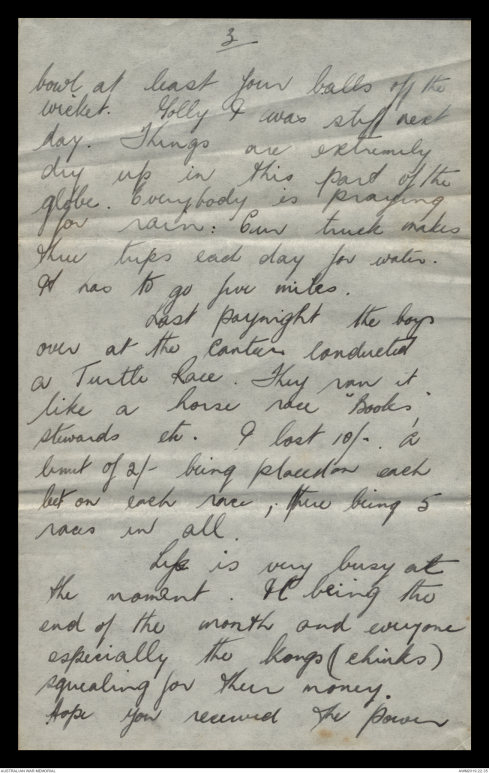 3
bowl at least four balls off the
wicket. Golly I was stiff next
day. Things are extremely
dry up in this part of the
globe. Everybody is praying
for rain: Our truck makes
three trips each day for water.
It has to go five miles.
Last paynight the boys
over at the Canteen conducted
a Turtle Race. They ran it
like a horse race "Books,"
stewards etc. I lost 10/-. A
limit of 2/- being placed on each
bet on each race, there being 5
races in all.
Life is very busy at
the moment. It being the
end of the month and everyone
especially the Kongs (chinks)
squealing for their money.
Hope you received the Power
AUSTRALIAN WAR MEMORIAL